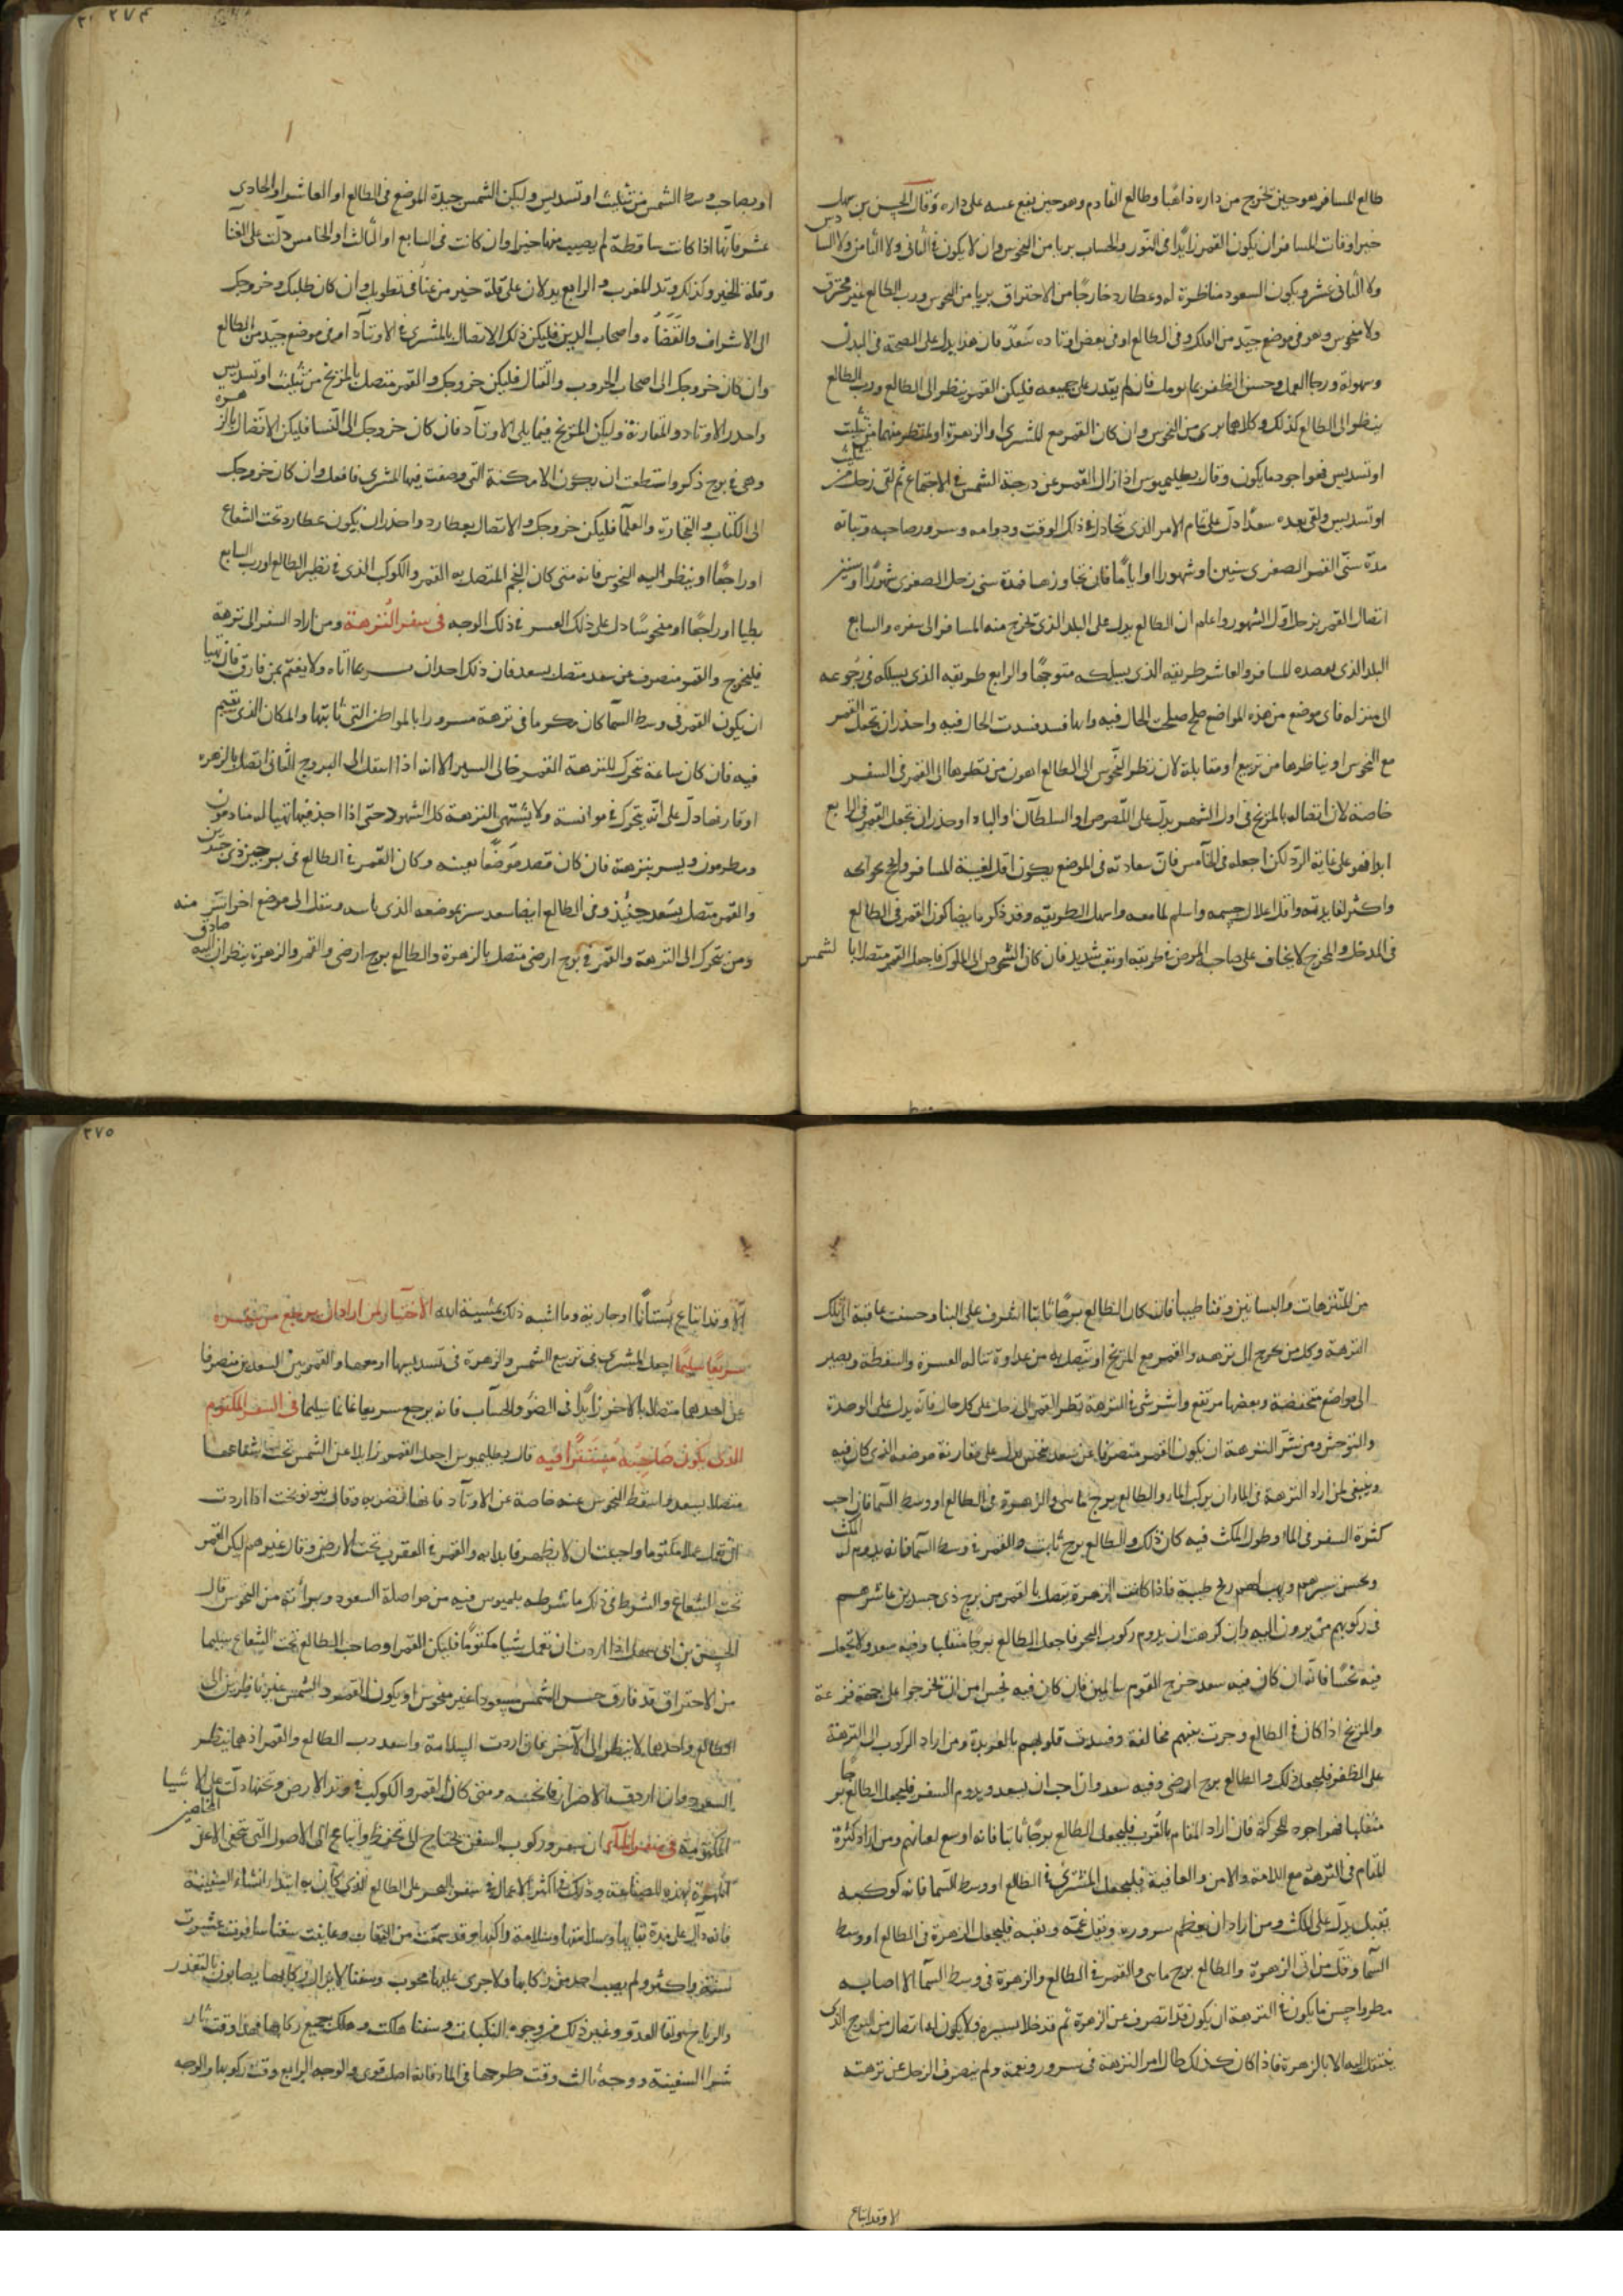 طالع المسافر هو حين يخرج من داره ذاهبا وطالع القادم وهو حين يقع عينه على داره وقال الحسن بن سهل
خير اوقات المسافر ان يكون القمر زايدا فى النور والحساب بريا من النحوس وان لا يكون فى الثانى ولا الثامن ولا السادس
ولا الثانى عشر ويكون السعود مناظرة له وعطارد خارجا من الاحتراق بريا من النحوس ورب الطالع غير محترق
ولا منحوس وهو فى موضع جيد من الفلك وفى الطالع او فى بعض اوتاده سعد فان هذا يدل على الصحة فى البدن
وسهولة ورجا العمل وحسن الظفر بما يومل فان لم يقدر على جميعه فليكن القمر ينظر الى الطالع ورب الطالع
ينظر الى الطالع كذلك وكلاهما برى من النحوس وان كان القمر مع المشترى او الزهرة او ينظر منهما من تثليث
او تسديس فهو اجود ما يكون وقال بطليموس اذا زال القمر عن درجة الشمس فى الاجتماع ثم لقى زحل من تثليث
او تسديس ولقى بعده سعدا دل على تمام الامر الذى تحاول فى ذلك الوقت ودوامه وسرور صاحبه وثباته
مدة سنى القمر الصغرى سنين او شهورا او اياما فان تجاوزها فمدة سنى زحل الصغرى شهورا او سنين
اتصال القمر بزحل اول الشهور واعلم ان الطالع يدل على البلد الذى يخرج منه المسافر الى سفره والسابع
البلد الذى يقصده المسافر والعاشر طريقه الذى يسلكه متوجها والرابع طريقه الذى يسلكه فى رجوعه
الى منزله فاى موضع من هذه المواضع صلح صلحت الحال فيه وايها فسد فسدت الحال فيه واحذر ان تجعل القمر
مع النحوس او يناظرها من تربيع او مقابلة لان نظر النحوس الى الطالع اهون من نظرها الى القمر فى السفر
خاصة لان اتصاله بالمريخ فى اول الشهر يدل على اللصوص او السلطان او البلد واحذر ان تجعل القمر فى الرابع
ابدا فهو على غاية الرد لكن اجعله فى الخامس فان سعادته فى الموضع يكون اقل لغيبة المسافر وانجح بحوائجه
واكثر لفايدته واقل اعلال جسمه واسلم لما معه واسهل لطريقه وقد ذكر ايضا كون القمر فى الطالع
فى المدخل والمخرج لا يخاف على صاحبه المرض فى طريقه او تعب شديد فان كان الشخوص الى الملوك فاجعل القمر متصلا بالشمس
٢٧٤
او بصاحب وسط الشمس من تثليث او تسديس وليكن الشمس جيدة الموضع فى الطالع او العاشر او الحادى
عشر فانها اذا كانت ساقطة لم يصيب منها خيرا وان كانت فى السابع او الثالث او الخامس دلت على العنا
وقلة الخير وكذلك وتد المغرب والرابع يدلان على قلة خير من عنا فى تطويل وان كان طلبك وخروجك
الى الاشراف والقضاة واصحاب الدين فليكن ذلك الاتصال بالمشترى فى الاوتاد او فى موضع جيد من الطالع
وان كان خروجك الى اصحاب الحروب والقتال فليكن خروجك والقمر متصل بالمريخ من تثليث او تسديس
واحذر الاوتاد والمقارنة وليكن المريخ فيما يلى الاوتاد فان كان خروجك الى النسا فليكن الاتصال بالزهرة
وهى فى برج ذكر واستطعت ان يكون الامكنة التى وصفت فيها المشترى فافعل وان كان خروجك
الى الكتاب والتجارة والعلما فليكن خروجك والاتصال بعطارد واحذر ان يكون عطارد تحت الشعاع
او راجعا او ينظر اليه النحوس فانه متى كان النجم المتصل به القمر والكوكب الذى فى نظير الطالع او رب السابع
بطيا او راجعا او منحوسا دل على ذلك العسر فى ذلك الوجه فى سفر النزهة ومن اراد السفر الى نزهة
فليخرج والقمر منصرف عن سعد متصل بسعد فان ذلك احد ان يسر بما اتاه ولا يغتم بمن فارق فان تهيا
ان يكون القمر فى وسط السما كان مكرما فى نزهة مسرورا بالمواطن التى ثابتها والمكان الذى يقيم
فيه فان كان ساعة تحرك للنزهة القمر خالى السير الا انه اذا انتقل الى البروج الثانى اتصل بالزهره
او قارنها دل على انه يتحرك فى موانسة ولا يشتهى النزهة كل الشهود حتى اذا اخذ فيها تهيا له منادمون
ومطربون ويسر بنزهة فان كان قصد موضعا بعينه وكان القمر فى الطالع فى برجين ذى جسدين
والقمر متصل بسعد حينئذ وفى الطالع ايضا سعد سر بموضعه الذى ياسه وينقل الى موضع اخر استر منه
ومن تحرك الى النزهة والقمر فى برج ارضى متصل بالزهرة والطالع برج ارضى والقمر والزهرة ينظران اليه صادق
من المتنزهات والبساتين وقتا طيبا فان كان الطالع برجا ثابتا اشرف على البنا وحسنت عاقبة تلك
النزهة وكل من يخرج الى نزهه والقمر مع المريخ او يتصل به من عداوة تناله العسرة والسقطة ويصير
الى مواضع منخفضة وبعضها مرتفع واشر شى فى النزهة نظر القمر الى زحل على كل حال فانه يدل على الوحدة
والتوحش ومن شر النزهة ان يكون القمر منصرفا عن سعد بنحس يدل على مقارنة موضعه الذى كان فيه
وينبغى لمن اراد النزهة فى الماء ان يركب الماء والطالع برج مائى والزهرة فى الطالع او وسط السما فان احب
كثرة السفر فى الماء وطول المكث فيه كان ذلك والطالع برج ثابت والقمر فى وسط السما فانه يدوم له المكث
ويحسن سيرهم ويهب لهم ريح طيبة فاذا كانت الزهرة يتصل بالقمر من برج ذى جسدين عاشرهم
فى ركوبهم من يرون اليه وان كرهت ان يدوم ركوب البحر فاجعل الطالع برجا منقلبا وفيه سعد ولا تجعل
فيه نحسا فانه ان كان فيه سعد خرج القوم سالمين فان كان فيه نحس امن ان يخرجوا على جهة فزعة
والمريخ اذا كان فى الطالع وجرت بينهم مخالفة وفسدت قلوبهم بالعربدة ومن اراد الركوب الى النزهة
على الظفر فليجعل ذلك والطالع برج ارضى وفيه سعد وان احب ان يسعد ويدوم السفر فليجعل الطالع برجا
منقلبا فهو اجود للحركة فان اراد المقام بالقرب فليجعل الطالع برجا ثابتا فانه اوسع لهم ومن اراد كثرة
المقام فى النزهة مع السلامة والامن والعافية فليجعل المشترى فى الطالع او وسط السما فانه كوكب
ثقيل يدل على المكث ومن اراد ان يعظم سروره ويقل غمه وتعبه فليجعل الزهرة فى الطالع او وسط
السما وقل من راى الزهرة والطالع برج مائى والقمر فى الطالع والزهرة فى وسط السما الا اصابه
مطر واحسن ما يكون فى النزهة ان يكون قد انصرف عن الزهرة ثم قد خلا بسيره ولا يكون له اتصال من البرج الذى
ينتقل اليه الا بالزهرة فاذا كان كذلك طال امر النزهة فى سرور ونعمة ولم ينصرف الرجل عن نزهته
الا وقد ابتاع
٢٧٥
الا وقد ابتاع بستانا او جارية وما اشبه ذلك بمشيئة الله الاختيار لمن اراد ان يرجع من سفره
سريعا سليما اجعل المشترى فى تربيع الشمس والزهرة فى تسديسها او معها والقمر بين السعدين منصرفا
عن احدهما متصلا بالاخر زايدا فى الضو والحساب فانه يرجع سريعا غانما سليما فى السفر المكتوم
الذى يكون صاحبه مستترا فيه قال بطليموس اجعل القمر زايلا عن الشمس تحت شعاعها
متصلا بسعد واسقط النحوس عنه خاصة عن الاوتاد فانها تضر به وقال بنو نوبخت اذا اردت
ان تعمل عملا مكتوما واحببت ان لا يظهر فابدا به والقمر فى العقرب تحت الارض وقال غيرهم ليكن القمر
تحت الشعاع والشرط فى ذلك ما شرطه بطلميوس فيه من مواصلة السعود وبرائة من النحوس قال
الحسن بن سهل اذا اردت ان تعمل شيا مكتوما فليكن القمر او صاحب الطالع تحت الشعاع سليما
من الاحتراق قد فارق جسم الشمس مسعودا غير منحوس او يكون القمر والشمس غير ناظرين الى
الطالع واحدهما لا ينظر الى الآخر فان اردت السلامة واسعد رب الطالع والقمر اذ هما ينظر
السعود وان اردت الاضرار فانحسه ومتى كان القمر والكوكب فى وتد الارض وتحتها دلت على الاشيا
المكتومة فى سفر الماء ان سفر وركوب السفن يحتاج الى تحفظ واتباع الى الاصول التى تخفى الا عن
المهرة بهذه الصناعة وذلك اكثر الاعمال فى سفر البحر على الطالع الذى كان به ابتدا انشاء السفينة
فانه دال على مدة بقايها وسلامتها وسلامة راكبها وقد سمعت من الثقات وعاينت سفنا سافرت عشرين
سنة واكثر ولم يصب احد من ركابها ولا جرى عليها محبوب وسفنا لا يزال ركابها يصابون بالتعذر
والرياح ولقا العدو وغير ذلك من وجوه النكبات وسفنا هلكت وهلك جميع ركابها فهذا وقت ثان
شرا السفينة ووجه ثالث وقت طرحها فى الماء فانه اصل قوى والوجه الرابع وقت ركوبها والوجه